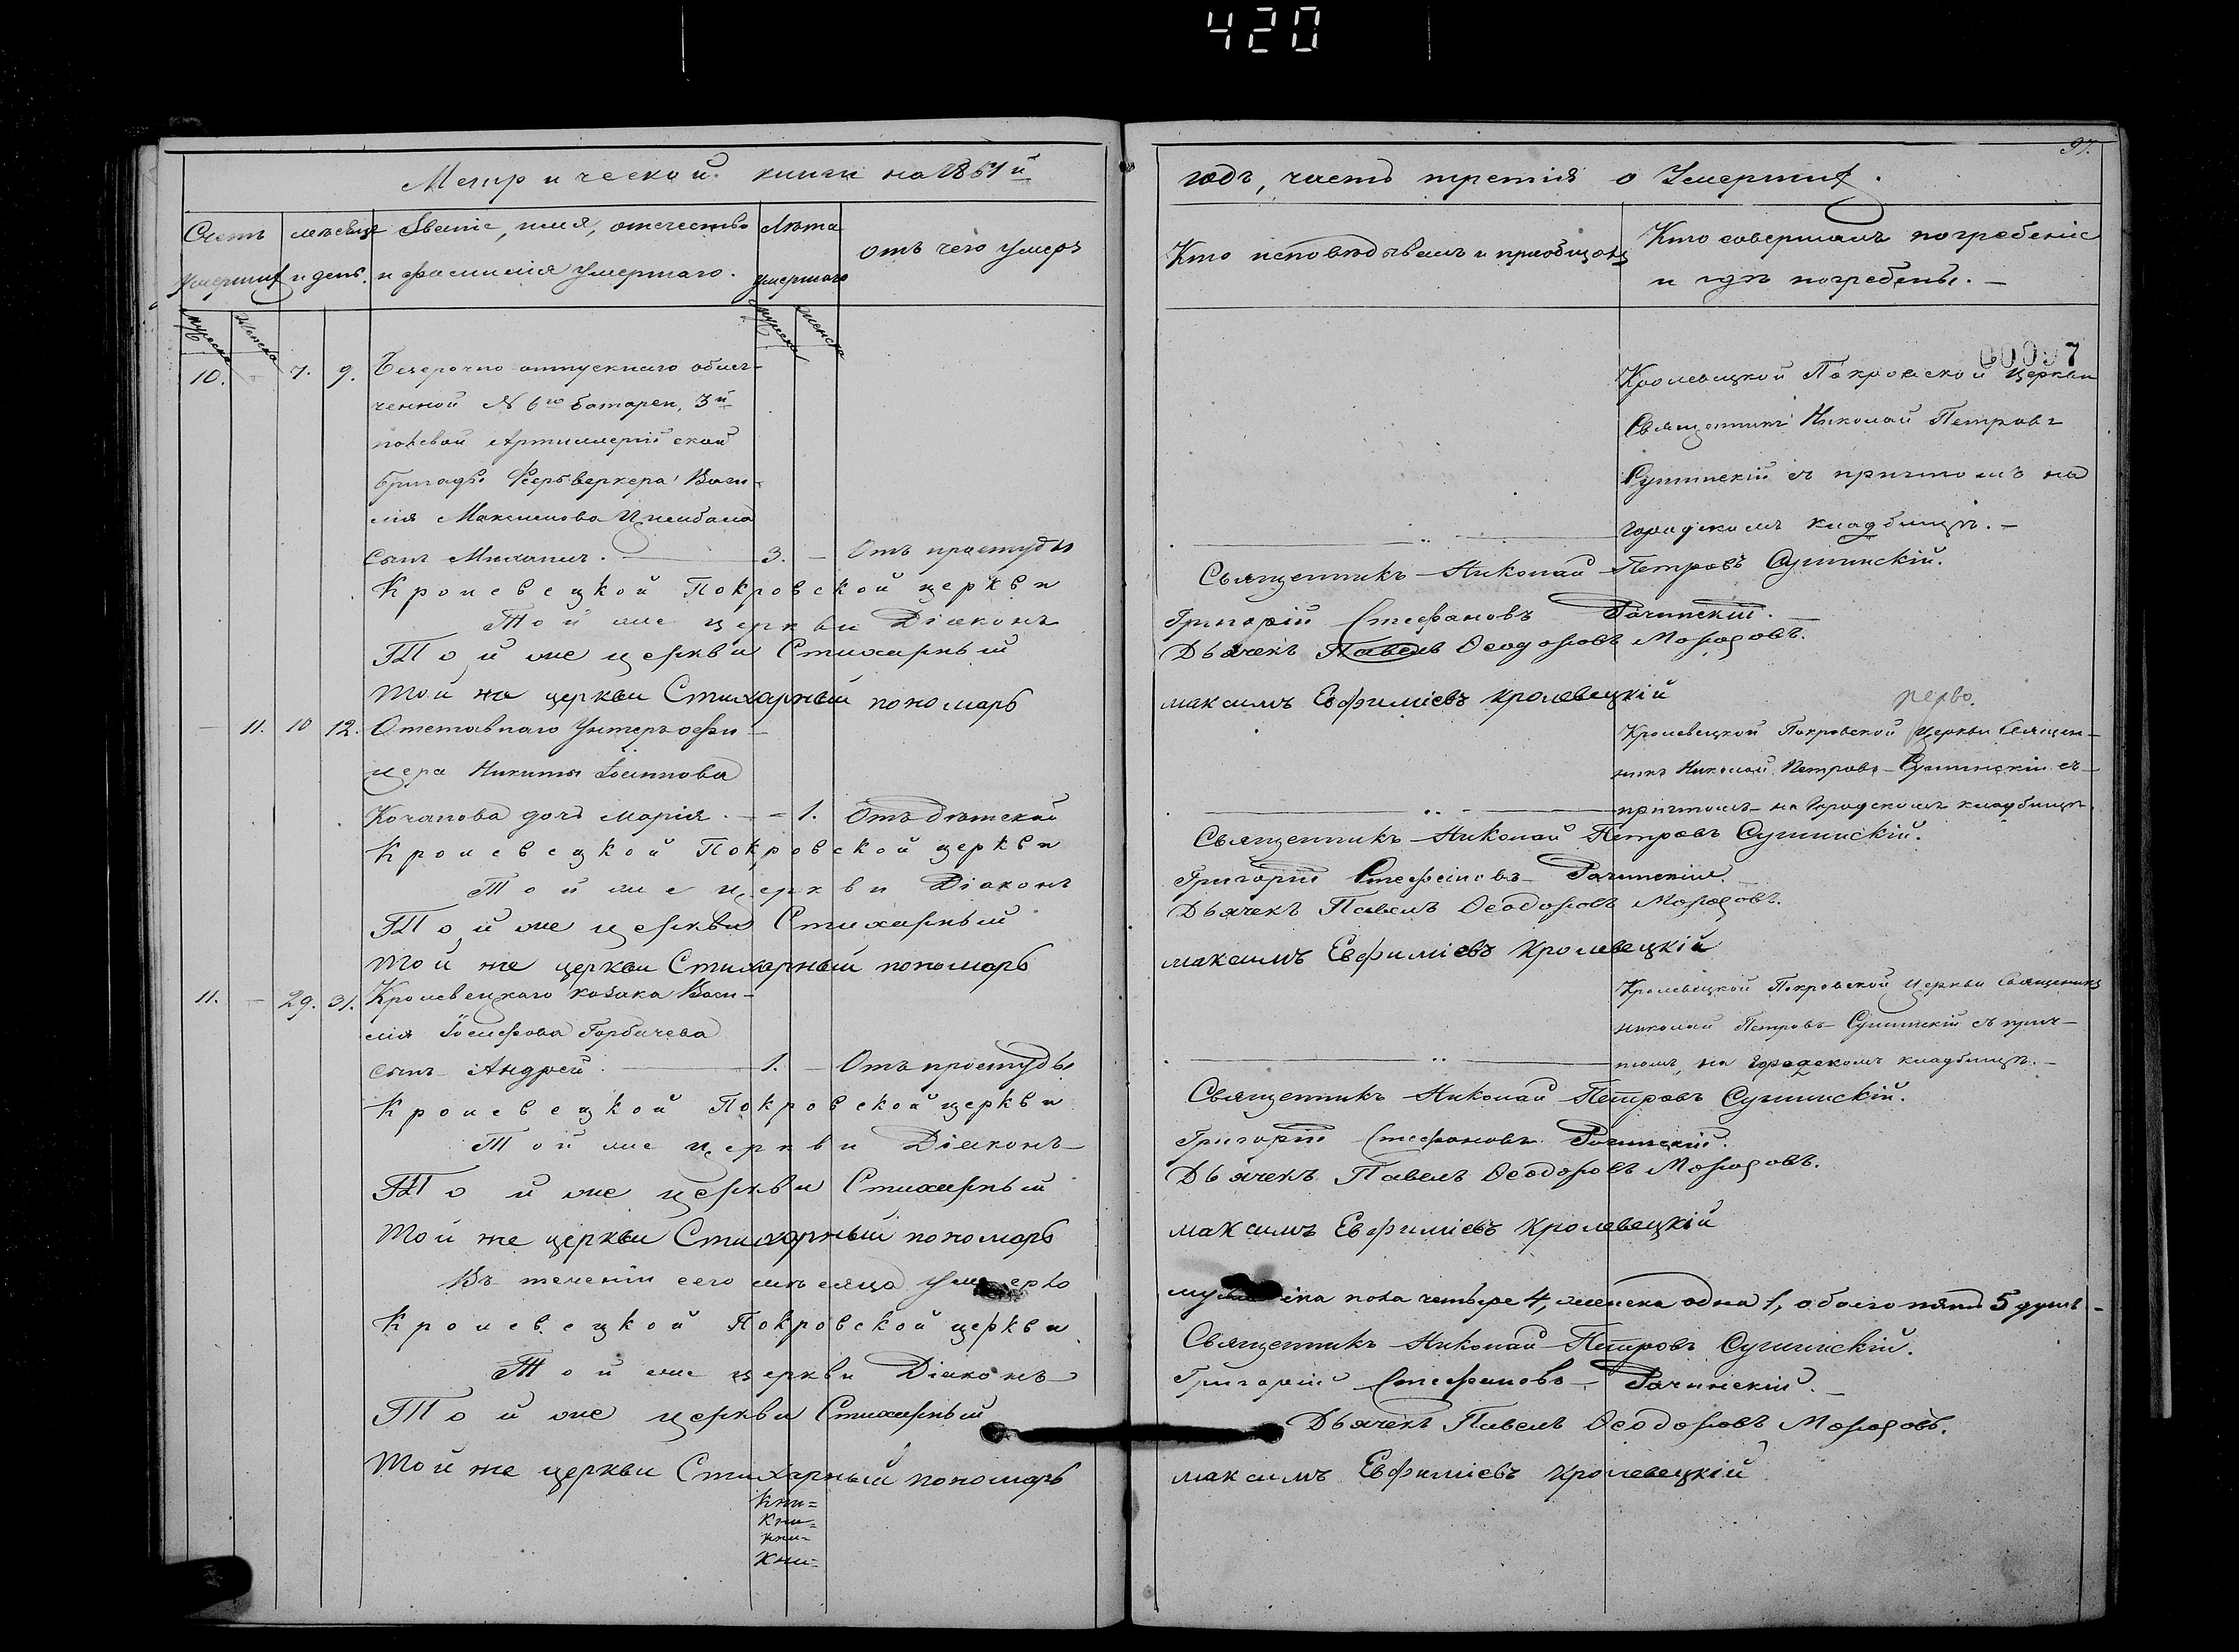 420
97.
Метрической книги на 1861й
годъ, часть третія о Умершихъ.
Счетъ умершихъ
мѣсяцъ и день.
Званіе, имя, отечество и фамилія умершаго.
Лѣта умершаго
отъ чего умеръ
Кто исповѣдывалъ и пріобщалъ
Кто совершалъ погребеніе и гдѣ погребены. —
мужеска
женска
мужеска
женска
00097
10. - 7. 9. Безсрочно отпускнаго облег-
ченной № 6го батареи, 3й
полевой Артиллерійской
бригады Феерверкера Васи-
лія Максимова Цимбала
сынъ Михаилъ. — 3. — Отъ простуды
Кролевецкой Покровской церкви
Священникъ Николай Петровъ
Сушинскій съ причтомъ на
городскомъ кладбищѣ. —
Кролевецкой Покровской церкви Священникъ Николай Петровъ Сушинскій.
Той же церкви Діаконъ Григорій Стефановъ Рачинскій.
Той же церкви Стихарный Дьячекъ Павелъ Ѳеодоровъ
Той же церкви Стихарный пономарь максимъ Евфиміевъ кролевецкій
— 11. 10 12. Отставнаго Унтеръ офи-
цера Никиты Іоаннова
Кочанова дочь Марія. — - 1. Отъ дѣтской
Кролевецкой Покровской Церкви Священ-
никъ Николай Петровъ Сушинскій съ
причтомъ на Городскомъ кладбищѣ.
Кролевецкой Покровской церкви Священникъ Николай Петровъ Сушинскій.
Той же церкви Діаконъ Григорій Стефановъ Рачинскій.
Той же церкви Стихарный Дьячекъ Павелъ Ѳеодоровъ
Той же церкви Стихарный пономарь максимъ Евфиміевъ кролевецкій
11. — 29. 31. Кролевецкаго козака Васи-
лія Іосифова Горбачева
сынъ Андрей. — 1. — Отъ простуды
Кролевецкой Покровской Церкви Священникъ
Николай Петровъ Сушинскій съ прич-
томъ, на городскомъ кладбищѣ. —
Кролевецкой Покровской церкви Священникъ Николай Петровъ Сушинскій.
Той же церкви Діаконъ Григорій Стефановъ Рачинскій.
Той же церкви Стихарный Дьячекъ Павелъ Ѳеодоровъ
Той же церкви Стихарный пономарь максимъ Евфиміевъ кролевецкій
Въ теченіи сего мѣсяца умерло мужеска пола четыре 4, женска одна 1, обоего пять 5 душъ -
Кролевецкой Покровской церкви Священникъ Николай Петровъ Сушинскій.
Той же церкви Діаконъ Григорій Стефановъ Рачинскій. —
Той же церкви Стихарный Дьячекъ Павелъ Ѳеодоровъ
Той же церкви Стихарный пономарь максимъ Евфиміевъ кролевецкій
Кни=
Кни=
кни=
Кни=